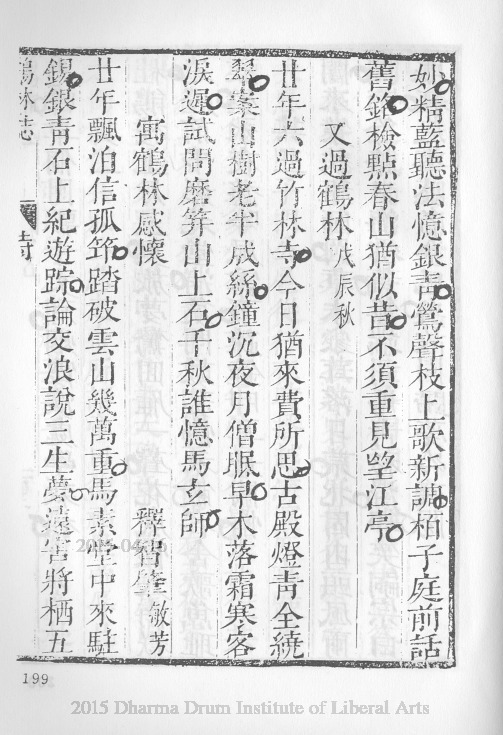 妙精藍聽法憶銀青鶯聲枝上歌新謔栢子庭前話
舊銘檢點春山猶似昔不須重見望江亭
又過鶴林戊辰秋
廿年六過竹林寺今日猶來費所思古殿燈青全繞
翠案山樹老半成絲鐘沉夜月僧眠早木落霜寒客
淚遲試問磨笄山上石千秋誰憶馬玄師
寓鶴林感懷 釋智 敏芳
廿年飄泊信孤筇踏破雲山幾萬重馬素堂中來駐
錫銀青石上紀遊踪論交浪說三生夢遠害將栖五
鶴林志 詩
199
2015 Dharma Drum Institute of Liberal Arts